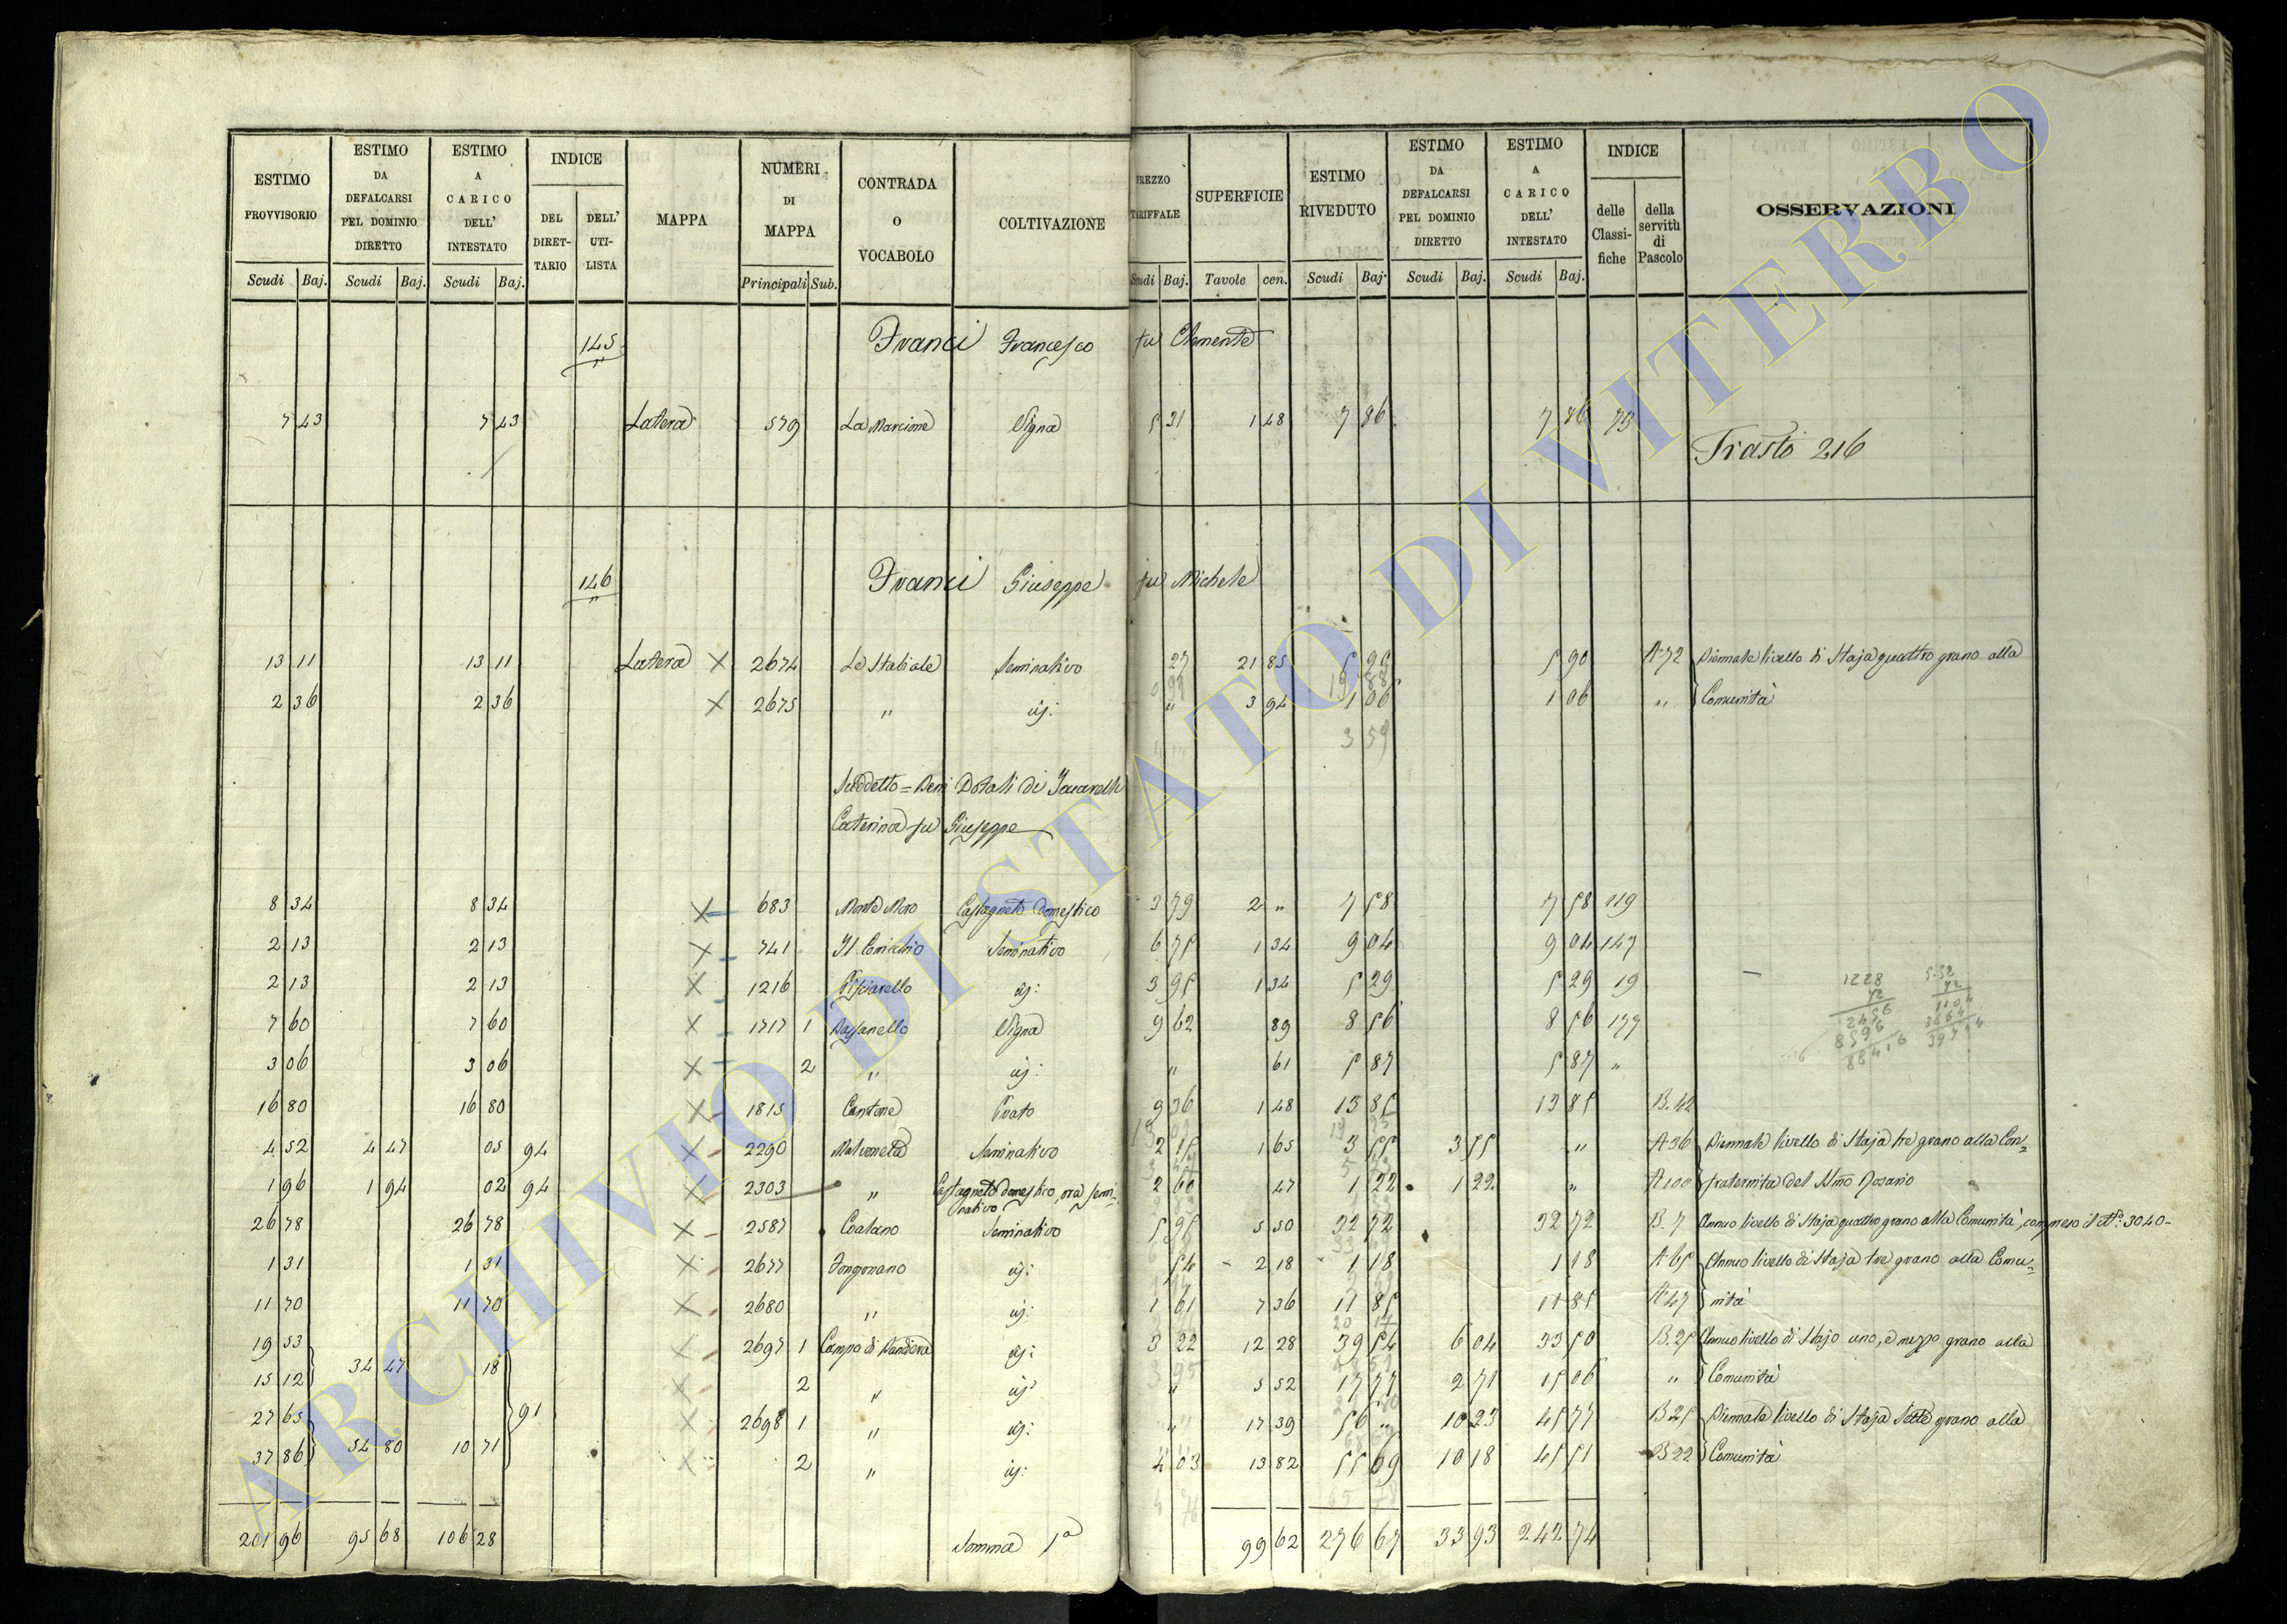 ESTIMO PROVVISORIO Scudi Baj. ESTIMO DA DEFALCARSI PEL DOMINIO DIRETTO Scudi Baj. ESTIMO A CARICO DELL' INTESTATO Scudi Baj. INDICE DEL DIRET-TARIO DELL' UTI-LISTA MAPPA NUMERI DI MAPPA Principali Sub. CONTRADA O VOCABOLO COLTIVAZIONE PREZZO TARIFFALE Scudi Baj. SUPERFICIE Tavole cen. ESTIMO RIVEDUTO Scudi Baj. ESTIMO DA DEFALCARSI PEL DOMINIO DIRETTO Scudi Baj. ESTIMO A CARICO DELL' INTESTATO Scudi Baj. INDICE delle Classi-fiche della servitù di Pascolo OSSERVAZIONI
145 Franci Francesco fu Clemente
7 43 7 43 Latera 579 La Marcione Vigna 5 31 1 48 7 86 7 86 73
Trasto 216
146 Franci Giuseppe fu Michele
13 11 13 11 Latera X 2674 Lo Stabiale Seminativo 27 21 85 5 90 5 90 A 72 Biennale livello di Staja quattro grano alla
2 36 2 36 X 2675 " id: " 3 94 1 06 1 06 " Comunità
3 59
Suddetto = Beni Dotali di
Caterina fu Giuseppe
8 34 8 34 X 683 Monte Moro Castagneto domestico 3 79 2 " 7 58 7 58 119
2 13 2 13 X 741 Il Cornicchio Seminativo 6 75 1 34 9 04 9 04 147
2 13 2 13 X 1216 Pisciarello id: 3 95 1 34 5 29 5 29 19
7 60 7 60 X 1717 1 Vigna 9 62 89 8 56 8 56 177
3 06 3 06 X 2 " id: " 61 5 87 5 87 "
16 80 16 80 X 1815 Cantone Prato 9 36 1 48 13 85 13 85 B. 42
4 52 4 47 05 94 X 2290 Seminativo 2 15 1 65 3 55 3 55 " A 36 Biennale livello di Staja tre grano alla Con=
1 96 1 94 02 94 X 2303 " Castagneto domestico, ora semi-nativo 2 60 47 1 22 1 22 " A 100 fraternita del SSmo Rosario
26 78 26 78 X 2587 Seminativo 5 95 5 50 32 72 32 72 B. 7 Annuo livello di Staja quattro grano alla Comunità, compreso il N°: 3040-
1 31 1 31 X 2677 id: 54 2 18 1 18 1 18 A 65 Annuo livello di Staja tre grano alla Comu=
11 70 11 70 X 2680 " id: 1 61 7 36 11 85 11 85 A 47 nità
19 53 X 2697 1 Campo di Bandiera id: 3 22 12 28 39 54 6 04 33 50 B. 25 Annuo livello di Stajo uno, e mezzo grano alla
15 12 34 47 18 X 2 " id: " 5 52 17 77 2 71 15 06 " Comunità
27 65 91 X 2698 1 " id: " 17 39 56 " 10 23 45 77 B 25 Biennale livello di Staja Sette grano alla
37 86 54 80 10 71 X 2 " id: 4 03 13 82 55 69 10 18 45 51 B 22 Comunità
201 96 95 68 106 28 Somma 1a 99 62 276 67 33 93 242 74
ARCHIVIO DI STATO DI VITERBO